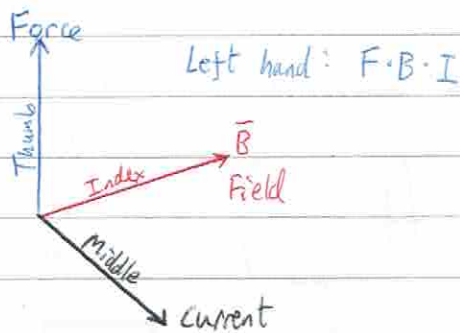 Force
Left hand: F·B·I
Thumb
B̄
Index
Field
Middle
current